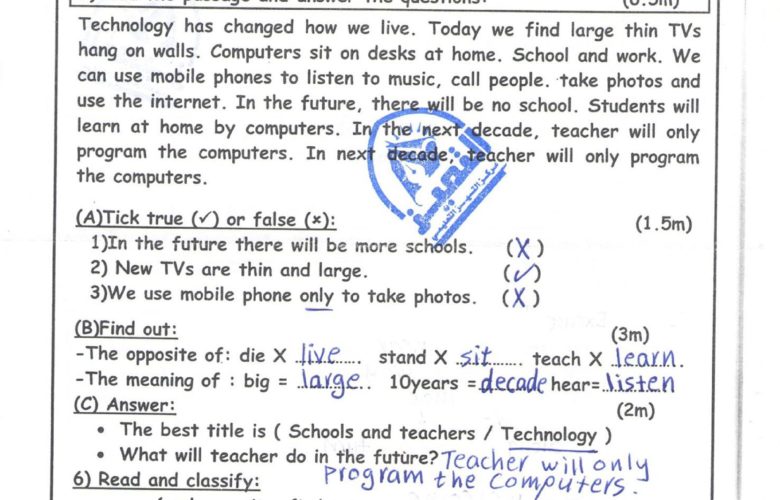 the passage and answer the questions:
Technology has changed how we live. Today we find large thin TVs
hang on walls. Computers sit on desks at home. School and work. We
can use mobile phones to listen to music, call people. take photos and
use the internet. In the future, there will be no school. Students will
learn at home by computers. In the next decade, teacher will only
program the computers. In next decade, teacher will only program
the computers.
(A)Tick true (✓) or false (×): (1.5m)
1)In the future there will be more schools. (X)
2) New TVs are thin and large. (✓)
3)We use mobile phone only to take photos. (X)
(B)Find out: (3m)
-The opposite of: die X live...... stand X .sit....... teach X .learn.
-The meaning of : big = ..large.. 10years = decade hear= listen
(C) Answer: (2m)
• The best title is ( Schools and teachers / Technology )
• What will teacher do in the future? Teacher will only
program the computers.
6) Read and classify: